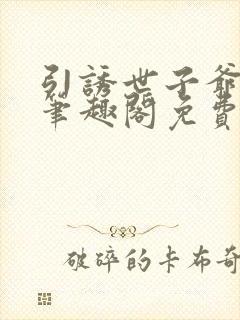 引誘世子爺
筆趣閣免費
破碎的卡布奇